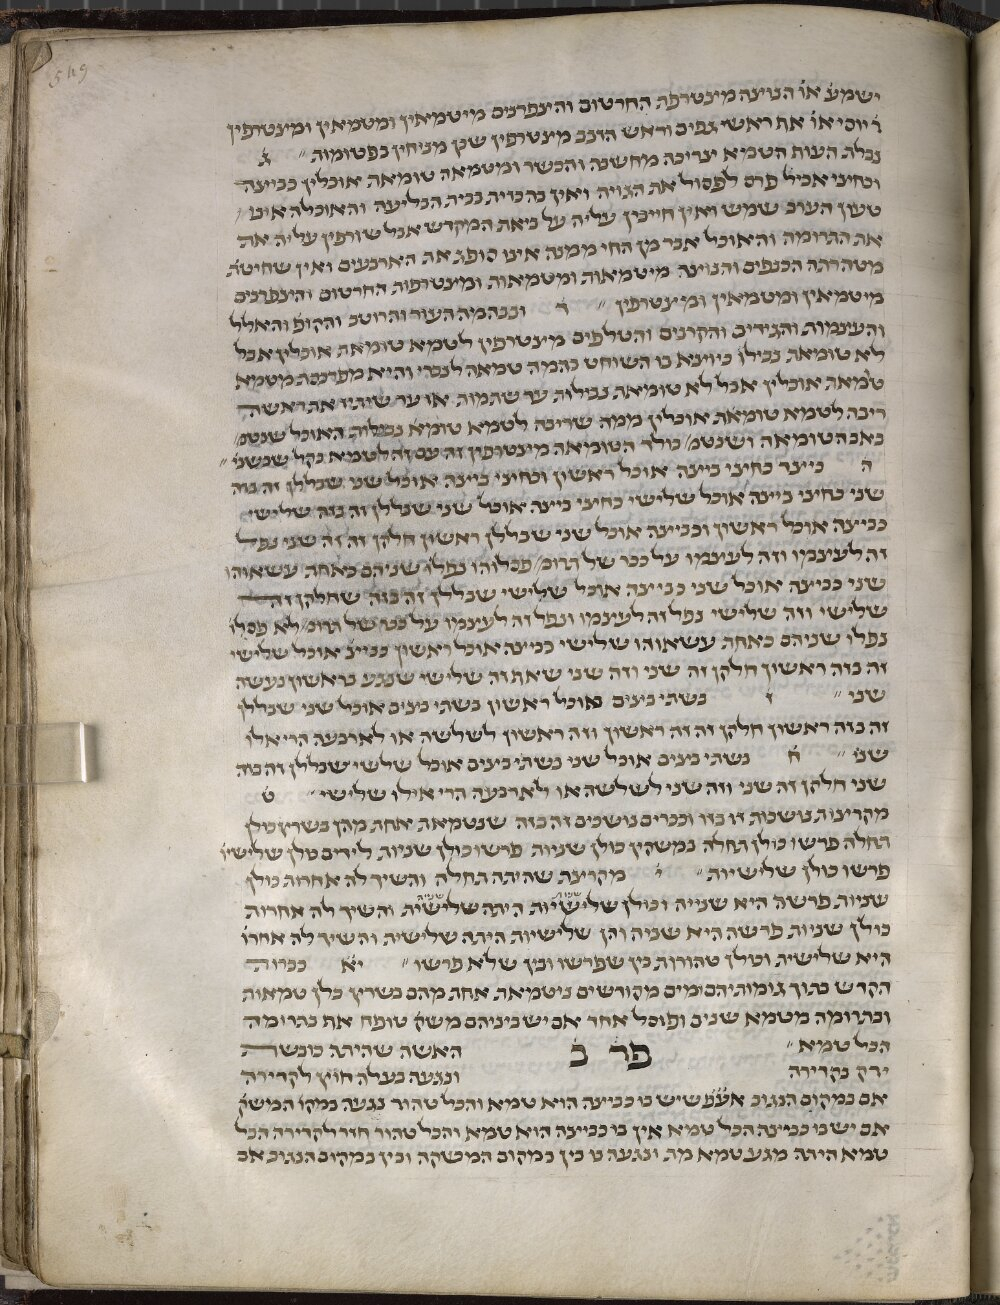 549
ישמע או הנוצה מיצטרפת החרטום והיצפרנים מיטמאין ומטמאין ומיצטרפין
ר יוסי או את ראשי גפיים וראש הזנב מיצטרפין שכן מניחין בפטומות ״ ג
נבלת העוף הטמא צריכה מחשבה והכשר ומטמאה טומאת אוכלין כביצה
וכחיצי אכיל פרס לפסול את הגויה ואין בה כזית בבית הבליעה והאוכלה אינו
טעון הערב שמש ואין חייבין עליה על ביאת המקדש אבל שורפין עליה את
את התרומה והאוכל אבר מן החי ממנה אינו סופג את הארבעים ואין שחיטתה
מטהרתה הכנפים והנוצה מיטמאות ומטמאות ומיצטרפות החרטום והיצפרנים
מיטמאין ומטמאין ומיצטרפין ״ ד ובבהמה העור והרוטב והקופ והאלל
והעצמות והגידים והקרנים והטלפים מיצטרפין לטמא טומאת אוכלין אבל
לא טומאת נבילו כיוצא בו השוחט בהמה טמאה לנכרי והיא מפרכסת מטמא
טמאת אוכלין אבל לא טומאת נבילות עד שתמות או עד שיתיז את ראשה
ריבה לטמא טומאת אוכלין ממה שריבה לטמא טומא נבילות האוכל שנטמ
באב הטומאה ושנטמ בולד הטומאה מיצטרפין זה עם זה לטמא כקל שבשני ״
ה כיצד כחיצי ביצה אוכל ראשון וכחיצי ביצה אוכל שני שבללן זה בזה
שני כחיצי ביצה אוכל שלישי כחיצי ביצה אוכל שני שבללן זה בזה שלישי
כביצה אוכל ראשון וכביצה אוכל שני שבללן ראשון חלקן זה וזה שני נפל
זה לעיצמו וזה לעיצמו על ככר של תרומ פסלוהו נפלו שניהם כאחת עשאוהו
שני כביצה אוכל שני כביצה אוכל שלישי שבללן זה בזה שחלקן זה
שלישי וזה שלישי נפל זה לעיצמו ונפל זה לעיצמו על ככר של תרומ לא פסלו
נפלו שניהם כאחת עשאוהו שלישי כביצה אוכל ראשון כביצ אוכל שלישי
זה בזה ראשון חלקן זה שני וזה שני שאת זה שלישי שנגע בראשון נעשה
שני ״ ז כשתי ביצים אוכל ראשון כשתי ביצים אוכל שני שבללן
זה בזה ראשון חלקן זה זה ראשון וזה ראשון לשלשה או לארבעה הרי אלו
שני ״ ח כשתי ביצים אוכל שני כשתי ביצים אוכל שלשי שבללן זה בזה
שני חלקן זה שני וזה שני לשלשה או לארבעה הרי אילו שלישי ״ ט
מקריצות נושכות זו בזו וככרים נושכים זה בזה שנטמאת אחת מהן בשרץ כולן
תחלה פרשו כולן תחלה במשקין כולן שניות פרשו כולן שניות לידים כולן שלישיו
פרשו כולן שלישיות ״ י מקריצה שהיתה תחלה והשיך לה אחרות כולן
שניות פרשה היא שנייה וכולן שלישיות היתה שלישית והשיך לה אחרות
כולן שניות פרשה היא שניה והן שלישיות היתה שלישית והשיך לה אחרו
היא שלישית וכולן טהורות בין שפרשו ובין שלא פרשו ״ יא ככרות
הקדש בתוך גומותיהם ומים מקודשים ניטמאת אחת מהם בשרץ כלן טמאות
ובתרומה מטמא שנים ופוסל אחד אם יש ביניהם משקה טופח את בתרומה
הכל טמא ״ פר ב האשה שהיתה כובשת
ירק בקדירה ונגעה בעלה חוץ לקדירה
אם במקום הנגוב אעפ שיש בו כביצה הוא טמא והכל טהור נגעה במקו המשקה
אם יש בו כביצה הכל טמא אין בו כביצה הוא טמא והכל טהור חזר לקדירה הכל
טמא היתה מגע טמא מת ונגעה בו בין במקום המשקה ובין במקום הנגוב אם